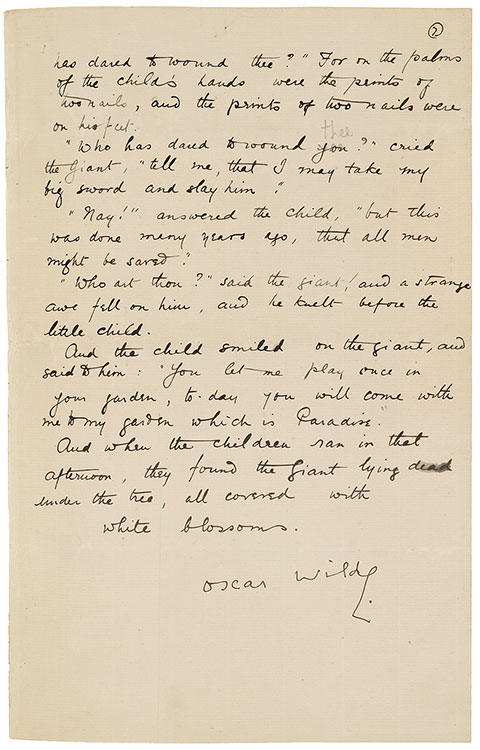 2
has dared to wound thee?" For on the palms
of the child's hands were the prints of
two nails, and the prints of two nails were
on his feet.
thee
"Who has dared to wound you?" cried
the Giant, "tell me, that I may take my
big sword and slay him."
"Nay!" answered the child, "but this
was done many years ago, that all men
might be saved."
"Who art thou?" said the giant! and a strange
awe fell on him, and he knelt before the
little child.
And the child smiled on the giant, and
said to him: "You let me play once in
your garden, to-day you will come with
me to my garden which is Paradise."
And when the children ran in that
afternoon, they found the Giant lying dead
under the tree, all covered with
white blossoms.
Oscar Wilde.